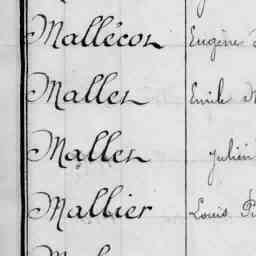 Mallécot Eugène
Mallet Emile
Mallet Julien
Mallier Louis